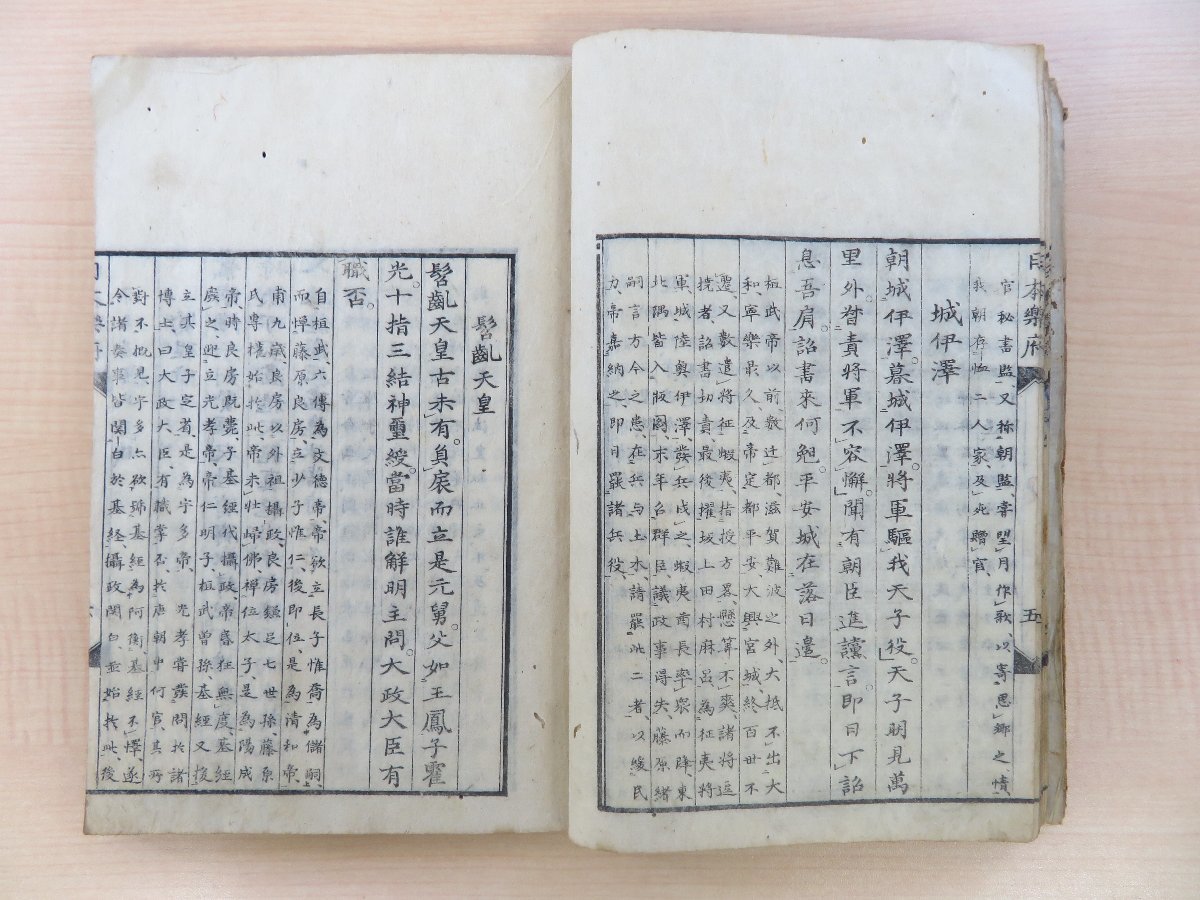 日本樂府 五
官秘書監、又称朝監、嘗望月作歌、以寄思鄉之情、
我朝存恤二人家、及死贈官、
城伊澤
朝城伊澤。暮城伊澤。將軍驅我天子役。天子明見萬
里外。督責將軍不容懈。聞有朝臣進讜言。即日下詔
息吾肩。詔書來何晚。平安城在落日邊。
桓武帝以前、數迁都、滋賀難波之外、大抵不出大
和、寧樂最久、及帝定都平安、大興宮城、終百世不
遷、又數遣將征蝦夷、指授方畧、懸算不爽、諸將逗
撓者、詔書切責、最後擢坂上田村麻呂、為征夷將
軍、城陸奧伊澤、發兵戍之、蝦夷酋長率衆而降、東
北隅皆入版圖、末年召群臣、議政事得失、藤原緒
嗣言、方今之患、在兵与土木、請罷此二者、以緩民
力、帝嘉納之、即日罷諸兵役、
髫齓天皇
髫齓天皇古未有。負扆而立是元舅。父如王鳳子霍
光。十指三結神璽綬。當時誰解明主問。大政大臣有
職否。
自桓武六傳為文德帝、帝欲立長子惟喬為儲嗣、
而憚藤原良房、立少子惟仁、後即位、是為清和帝、
甫九歲、良房以外祖攝政、良房鎌足七世孫、藤原
氏專權始於此、帝未壯歸佛、禪位太子、是為陽成
帝、時良房既薨、子基經代攝政、帝昏狂無度、基經
廢之、迎立光孝帝、帝仁明子、桓武曾孫、基經又援
立其皇子定省、是為宇多帝、光孝嘗發問於諸
博士、曰大政大臣、有職掌否、於唐朝中何官、其所
對不槪見、宇多亦欲號基經為阿衡、基經不懌、遂
令諸奏事皆関白於基経、攝政関白、並始於此、後